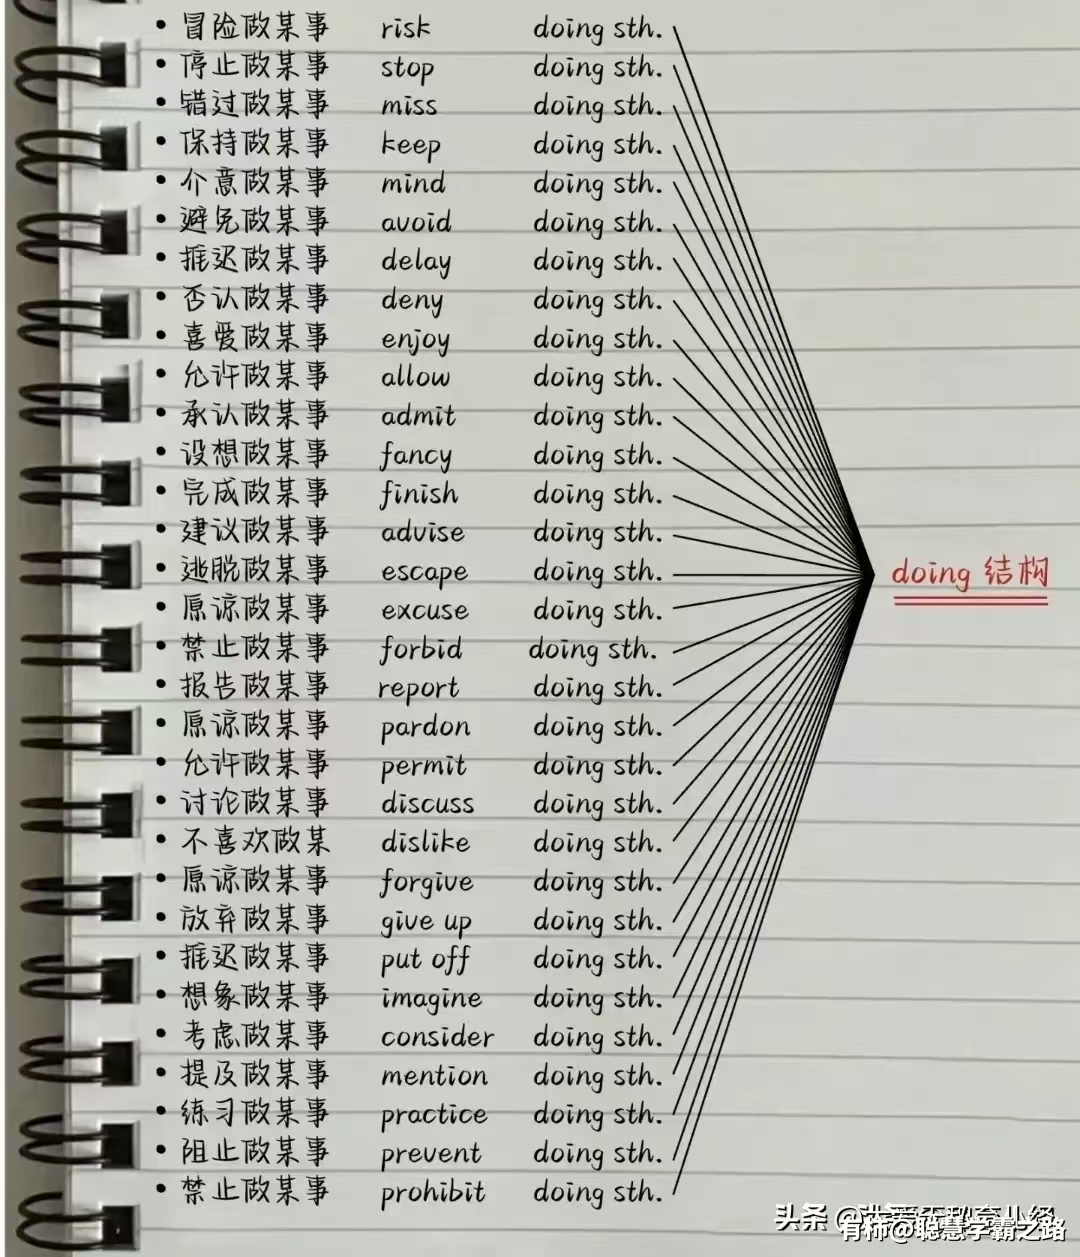 • 冒险做某事 risk doing sth.
• 停止做某事 stop doing sth.
• 错过做某事 miss doing sth.
• 保持做某事 keep doing sth.
• 介意做某事 mind doing sth.
• 避免做某事 avoid doing sth.
• 推迟做某事 delay doing sth.
• 否认做某事 deny doing sth.
• 喜爱做某事 enjoy doing sth.
• 允许做某事 allow doing sth.
• 承认做某事 admit doing sth.
• 设想做某事 fancy doing sth.
• 完成做某事 finish doing sth.
• 建议做某事 advise doing sth.
• 逃脱做某事 escape doing sth.
doing 结构
• 原谅做某事 excuse doing sth.
• 禁止做某事 forbid doing sth.
• 报告做某事 report doing sth.
• 原谅做某事 pardon doing sth.
• 允许做某事 permit doing sth.
• 讨论做某事 discuss doing sth.
• 不喜欢做某 dislike doing sth.
• 原谅做某事 forgive doing sth.
• 放弃做某事 give up doing sth.
• 推迟做某事 put off doing sth.
• 想象做某事 imagine doing sth.
• 考虑做某事 consider doing sth.
• 提及做某事 mention doing sth.
• 练习做某事 practice doing sth.
• 阻止做某事 prevent doing sth.
• 禁止做某事 prohibit doing sth.
头条
有柿@聪慧学霸之路